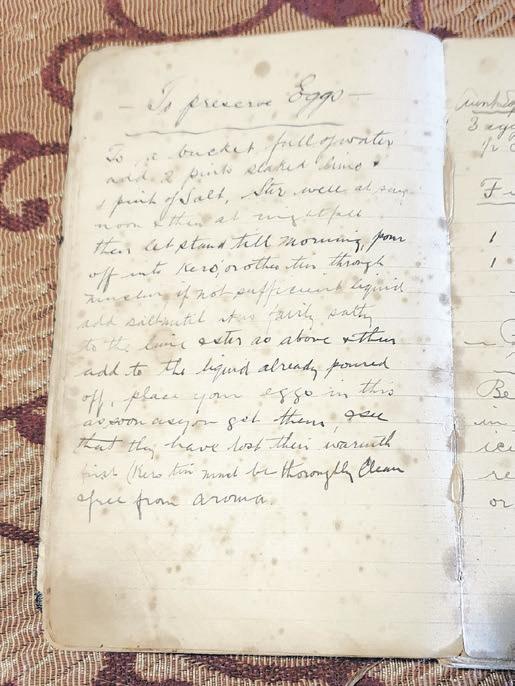 — To preserve Eggs —
To a bucket full of water
add 2 pints slaked lime &
1 pint of Salt, Stir well at say
noon & then at nightfall
then let stand till morning, pour
off into Kero, or other tin through
muslin, if not sufficient liquid
add salt until it is fairly salty
to the lime & stir as above & then
add to the liquid already poured
off, place your eggs in this
as soon as you get them, & see
that they have lost their warmth
first (Kero tin must be thoroughly Clean
& free from aroma.
3 egg
1/2 c
F
1
1
Be
in
re
or